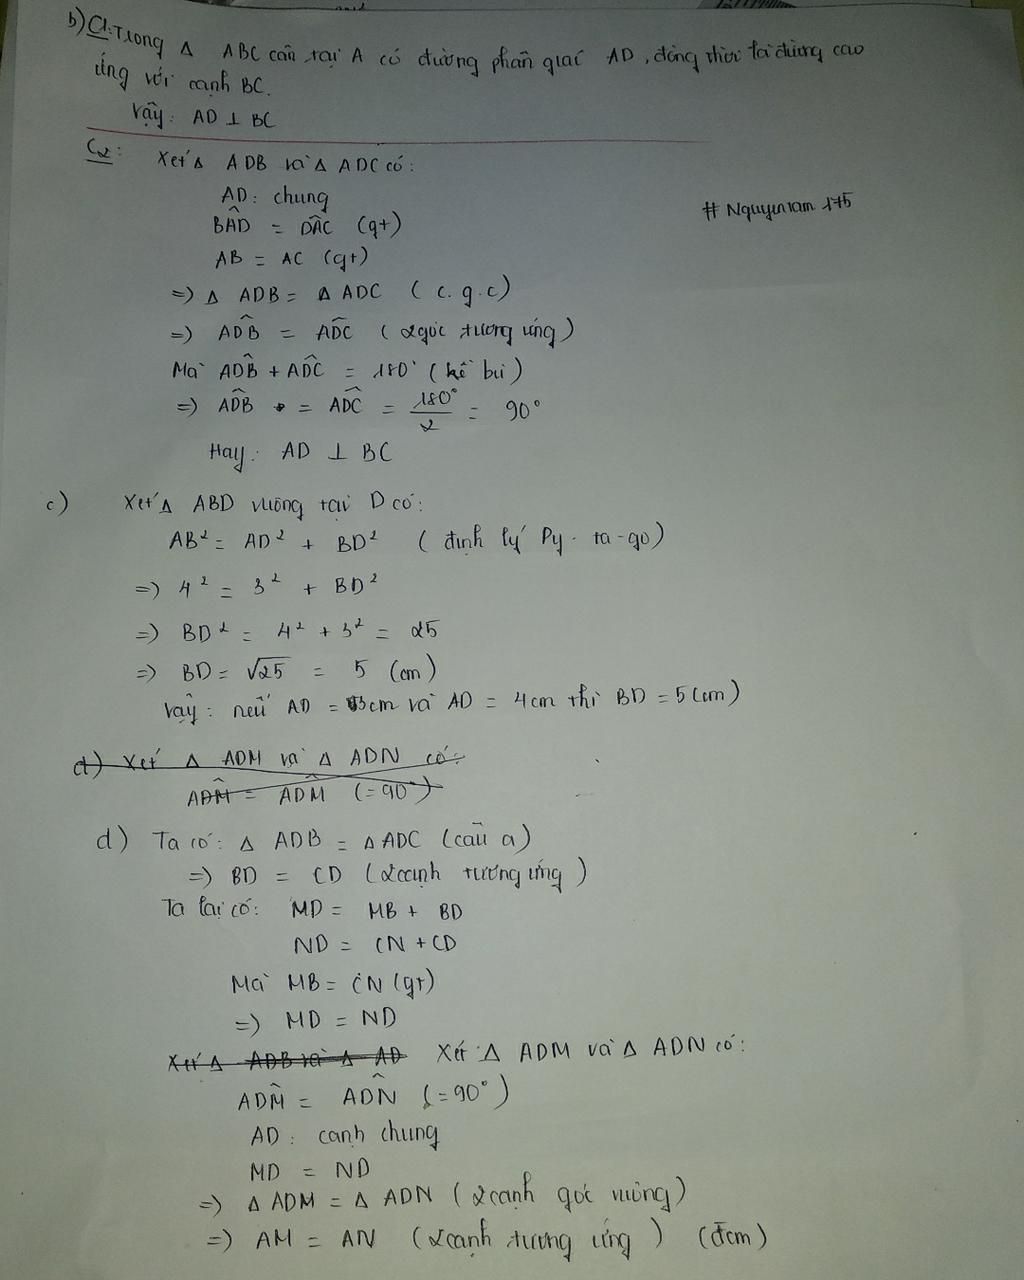 b) C1: Trong Δ ABC cân tại A có đường phân giác AD, đồng thời là đường cao
ứng với cạnh BC.
Vậy: AD ⊥ BC
C2: Xét Δ ADB và Δ ADC có:
AD: chung
BÂD = DÂC (gt)
# Nguyenvam 175
AB = AC (gt)
=> Δ ADB = Δ ADC (c.g.c)
=> AD̂B = AD̂C (2 góc tương ứng)
Mà AD̂B + AD̂C = 180° (kề bù)
=> AD̂B = AD̂C = 180°/2 = 90°
Hay: AD ⊥ BC
c) Xét Δ ABD vuông tại D có:
AB² = AD² + BD² (định lý Py-ta-go)
=> 4² = 3² + BD²
=> BD² = 4² + 3² = 25
=> BD = √25 = 5 (cm)
Vậy: nếu AD = 3cm và AD = 4cm thì BD = 5(cm)
d) Xét Δ ADM và Δ ADN có:
AD̂M = AD̂M (=90°)
d) Ta có: Δ ADB = Δ ADC (câu a)
=> BD = CD (2 cạnh tương ứng)
Ta lại có: MD = MB + BD
ND = CN + CD
Mà MB = CN (gt)
=> MD = ND
Xét Δ ADB và Δ AD Xét Δ ADM và Δ ADN có:
AD̂M = AD̂N (=90°)
AD: cạnh chung
MD = ND
=> Δ ADM = Δ ADN (2 cạnh góc vuông)
=> AM = AN (2 cạnh tương ứng) (đcm)